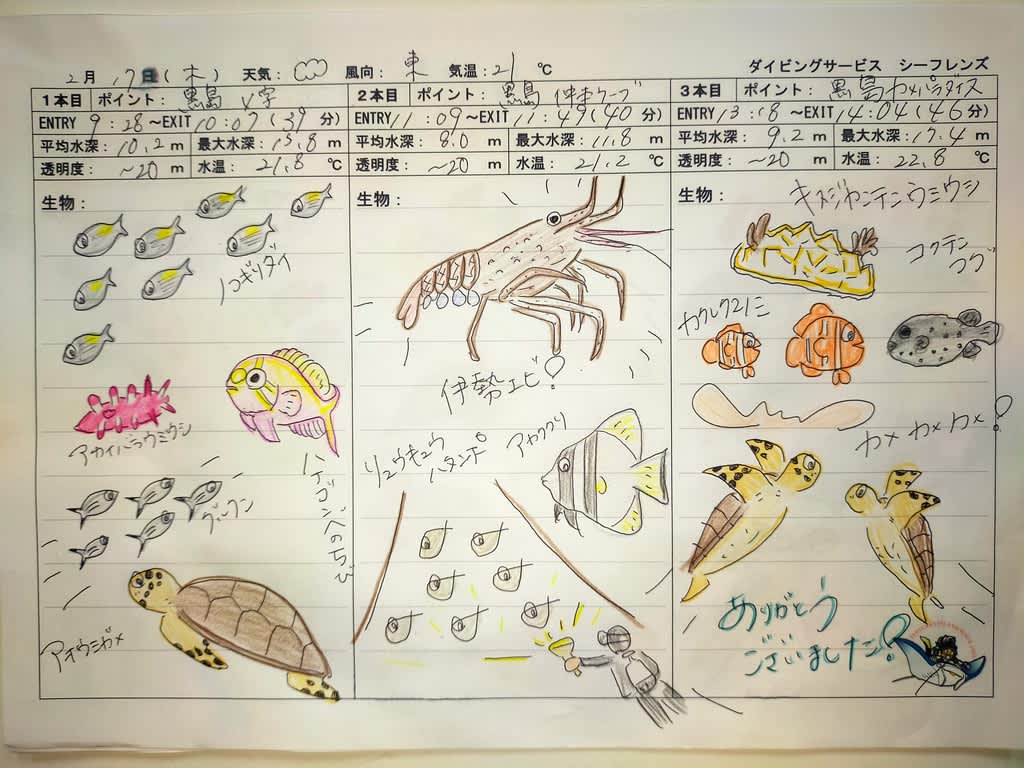 2月 17日(木) 天気: 風向: 東 気温:21 ℃ ダイビングサービス シーフレンズ
1本目 ポイント: 黒島 V字
ENTRY 9:28~EXIT 10:07(39分)
平均水深:10.2m 最大水深:15.8m
透明度: ~20m 水温:21.8℃
生物:
ノコギリダイ
アカイバラウミウシ
ハナゴンベのちび
グルクン
アオウミガメ
2本目 ポイント: 黒島
ENTRY 11:09~EXIT 11:49(40分)
平均水深: 8.0m 最大水深:11.8m
透明度: ~20m 水温:21.2℃
生物:
伊勢エビ!
リュウキュウ
ハタンポ
アカククリ
3本目 ポイント: 黒島 カメパラダイス
ENTRY 13:18~EXIT 14:04(46分)
平均水深: 9.2m 最大水深:17.4m
透明度: ~20m 水温:22.8℃
生物:
キスジカンテンウミウシ
コクテン
フグ
カクレクマノミ
カメカメカメ!
ありがとう
ございました!